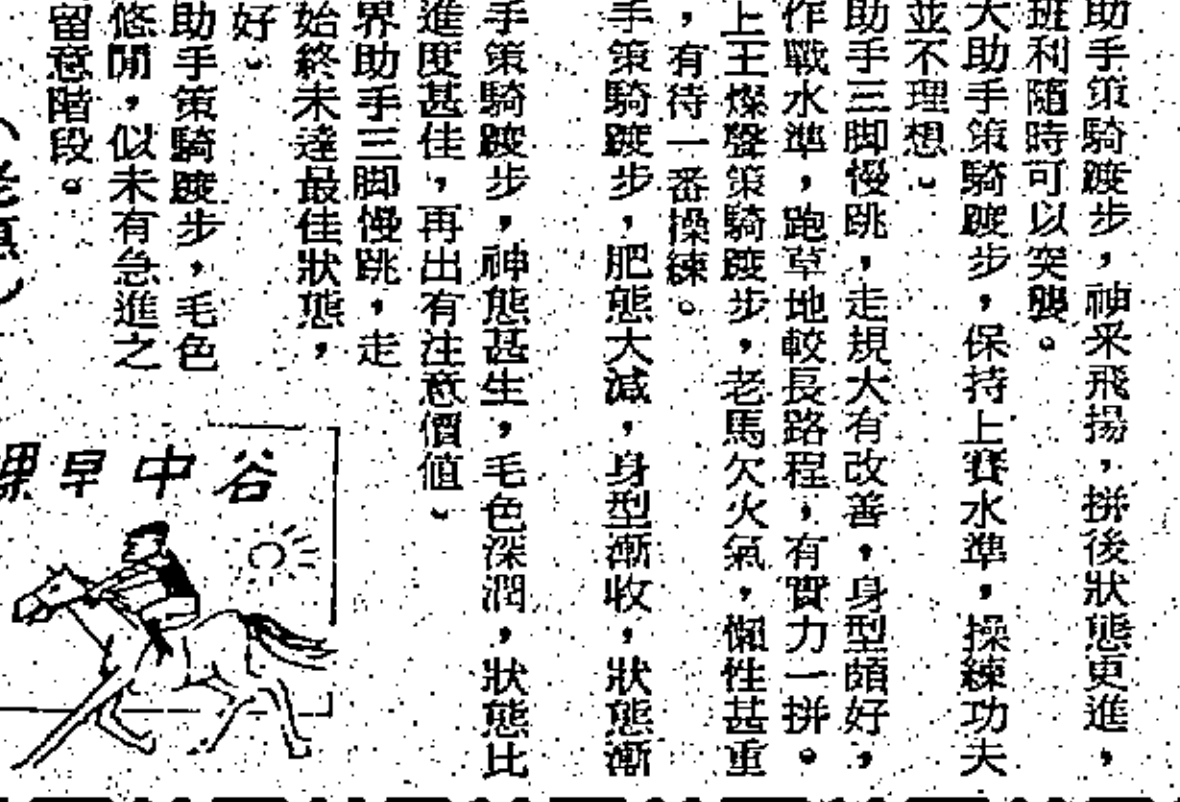 助手策騎踱步，神采飛揚，拼後狀態更進，
班利隨時可以突襲。
大助手策騎踱步，保持上賽水準，操練功夫
並不理想。
助手三脚慢跳，走規大有改善，身型頗好，
作戰水準，跑草地較長路程，有實力一拼。
上王燦聲策騎踱步，老馬欠火氣，懶性甚重
，有待一番操練。
手策騎踱步，肥態大減，身型漸收，狀態漸
手策騎踱步，神態甚生，毛色深潤，狀態比
進度甚佳，再出有注意價值。
界助手三脚慢跳，走
始終未達最佳狀態，
好。
助手策騎踱步，毛色
悠閒，似未有急進之
留意階段。
谷中早課